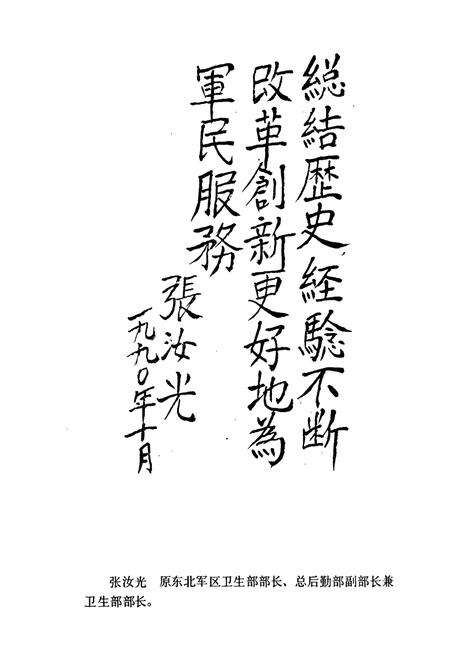 総結歴史経験不断
改革創新更好地為
軍民服務
張汝光
一九九〇年十月
张汝光　原东北军区卫生部部长、总后勤部副部长兼
卫生部部长。